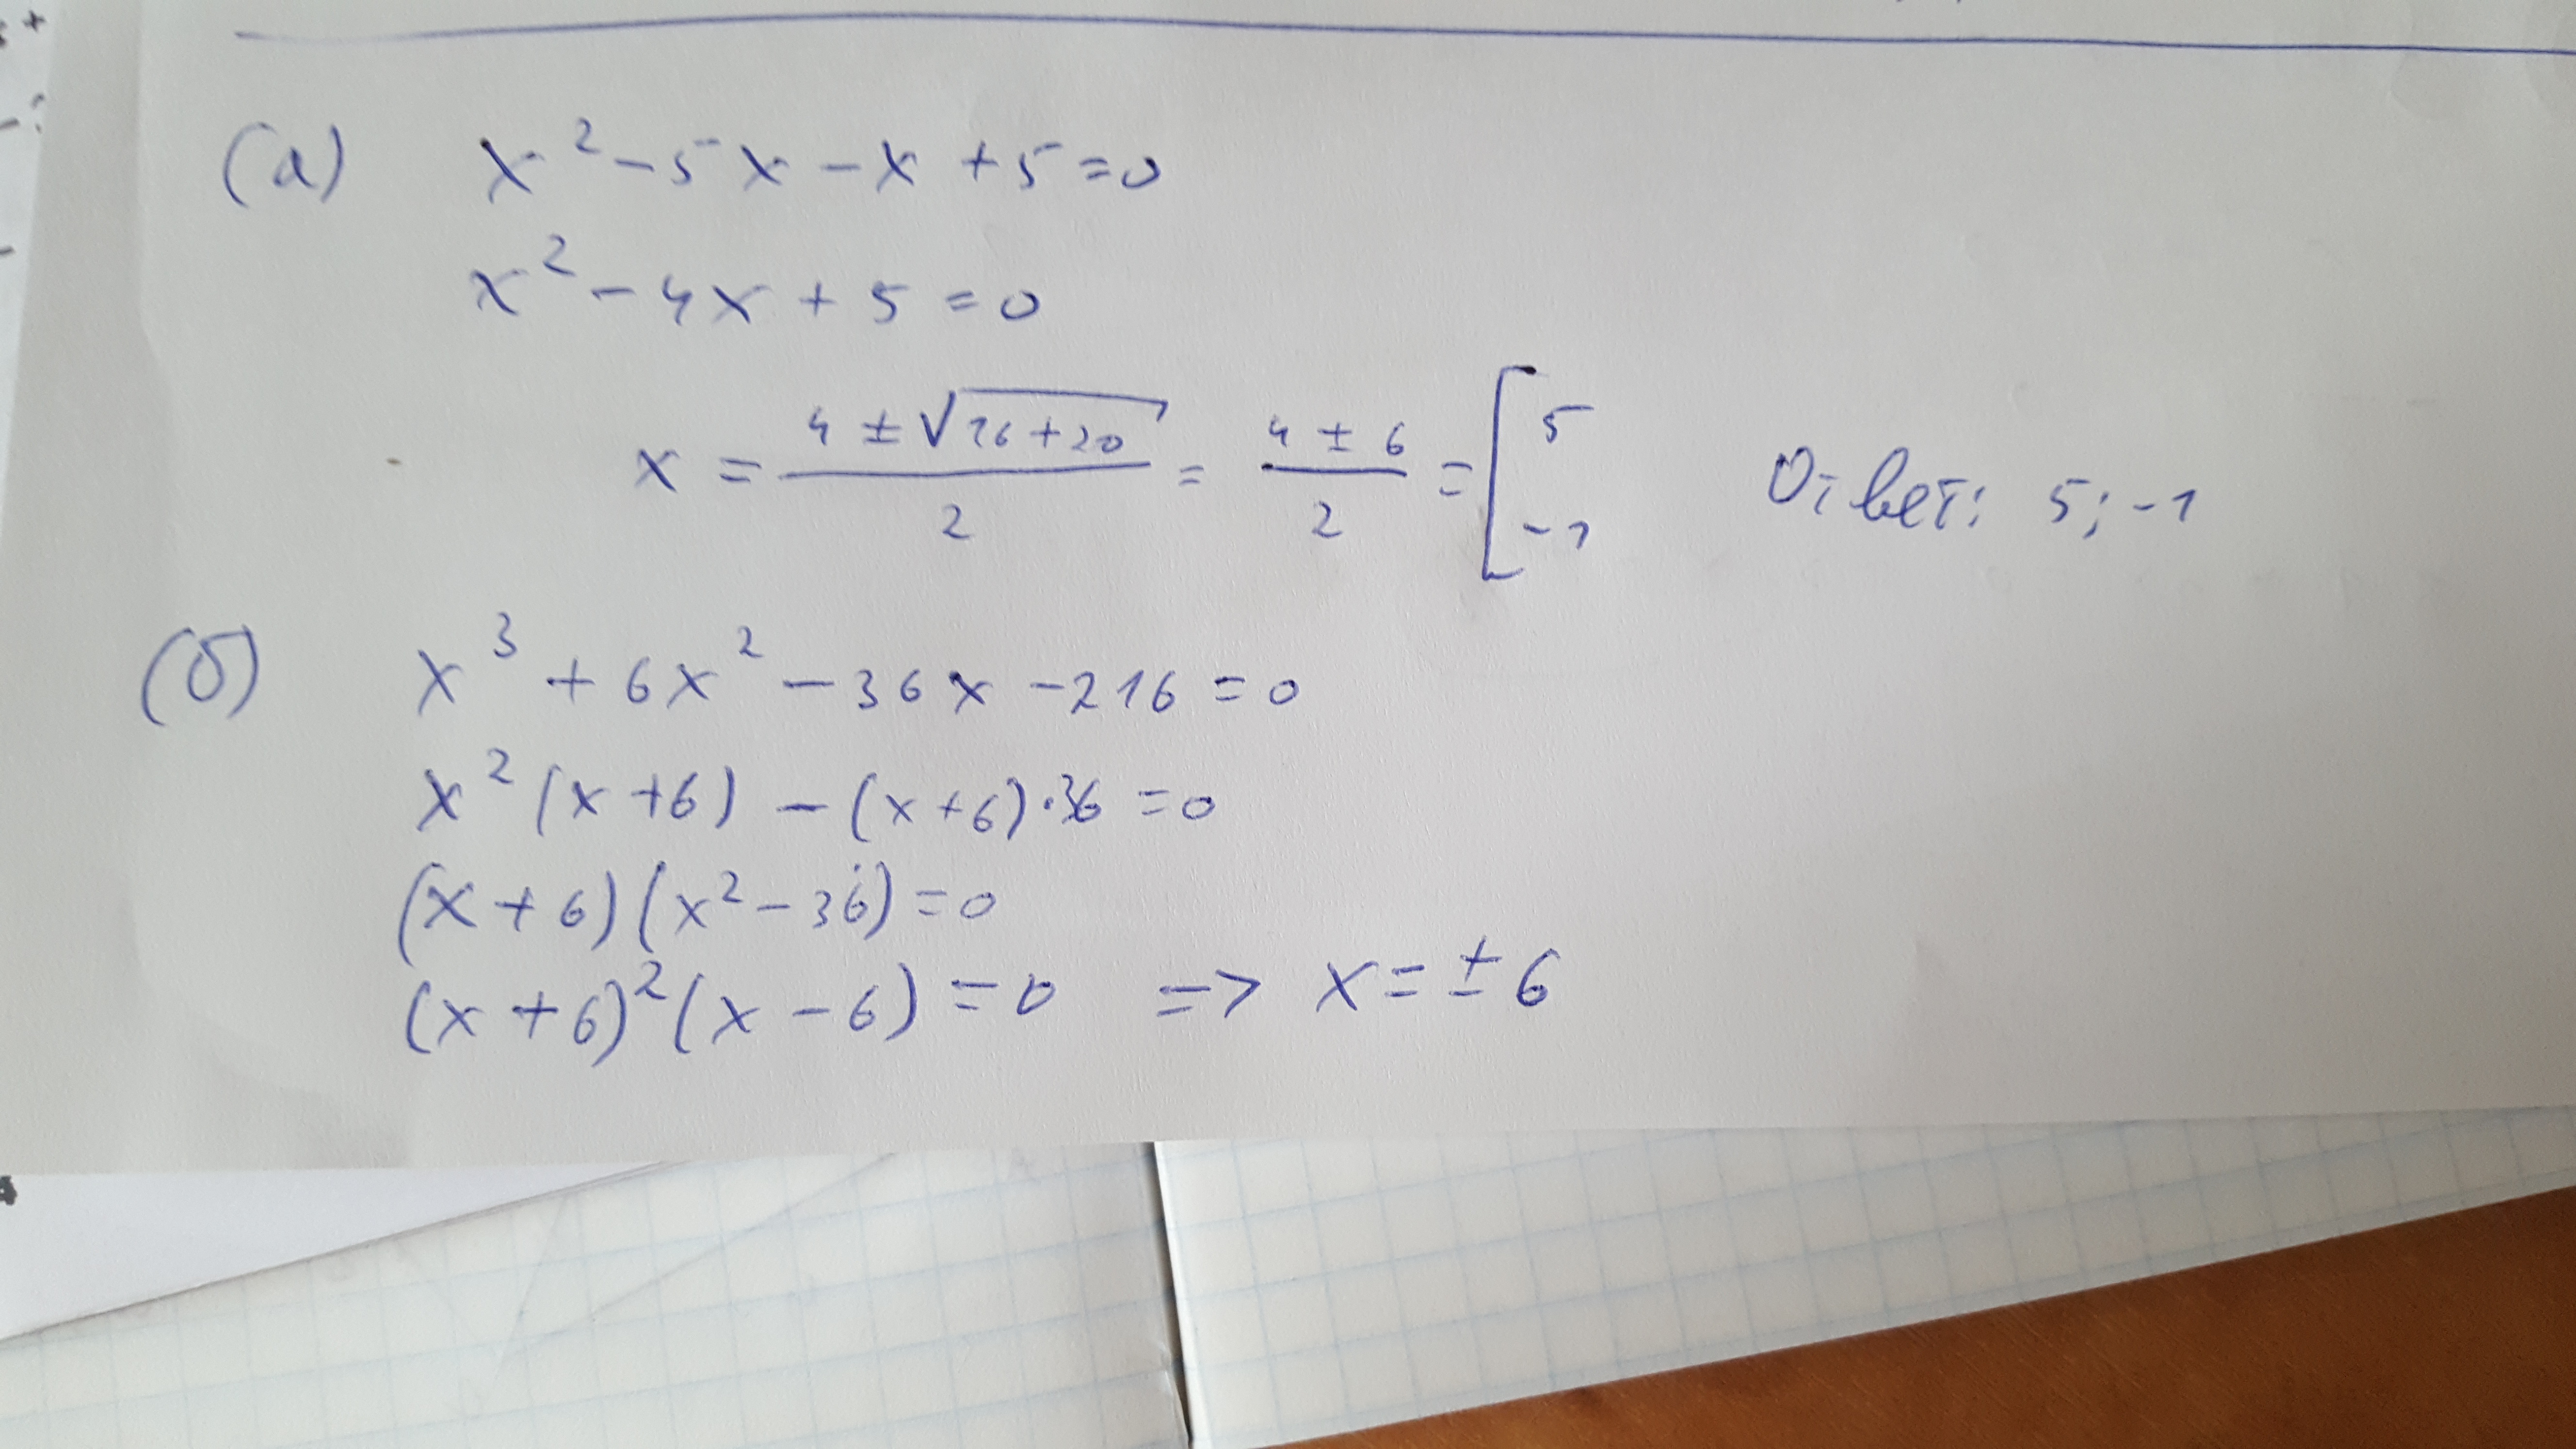 (а) x² - 5x - x + 5 = 0
x² - 4x + 5 = 0
x = (4 ± √(16+20))/2 = (4 ± 6)/2 = [5 -1 Ответ: 5; -1
(б) x³ + 6x² - 36x - 216 = 0
x²(x+6) - (x+6)·36 = 0
(x+6)(x²-36) = 0
(x+6)²(x-6) = 0 => x = ±6